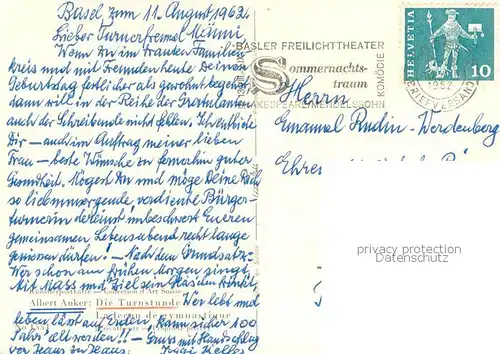 Basel zum 11. August 1962.
Lieber Turnerfreund Menni
Wenn Du im trauten Familien-
kreis und mit Freunden heute Deinen
Geburtstag festlicher als gewohnt begehst
dann will in der Reihe der Gratulanten
auch der Schreibende nicht fehlen. Ich entbiete
Dir – auch im Auftrag meiner lieben
Frau – beste Wünsche zu fernerhin guter
Gesundheit. Mögest Du und möge Deine Dich
so lieb umsorgende, verdiente Bürger-
turnerin dereinst unbeschwert Eueren
gemeinsamen Lebensabend recht lange
geniessen dürfen! – Nach dem Grundsatz:
Wer schon am frühen Morgen singt,
Mit Mass und Ziel sein Glas Roten trinkt,
Künstlerpostkarte – Collection d'Art Suisse
Albert Anker: Die Turnstunde
Wer lebt und
La leçon de gymnastique
leben lässt auf Erden, kann sicher 100
Jahr' alt werden!! – Gruss mit Handschlag
von Haus zu Haus:
BASLER FREILICHTTHEATER
Sommernachts-
traum
KOMÖDIE
SHAKESPEARE/MENDELSSOHN
HELVETIA
10
1962
BRIEFVERSAND
Herrn
Emanuel Rudin-Werdenberg
privacy protection
Datenschutz